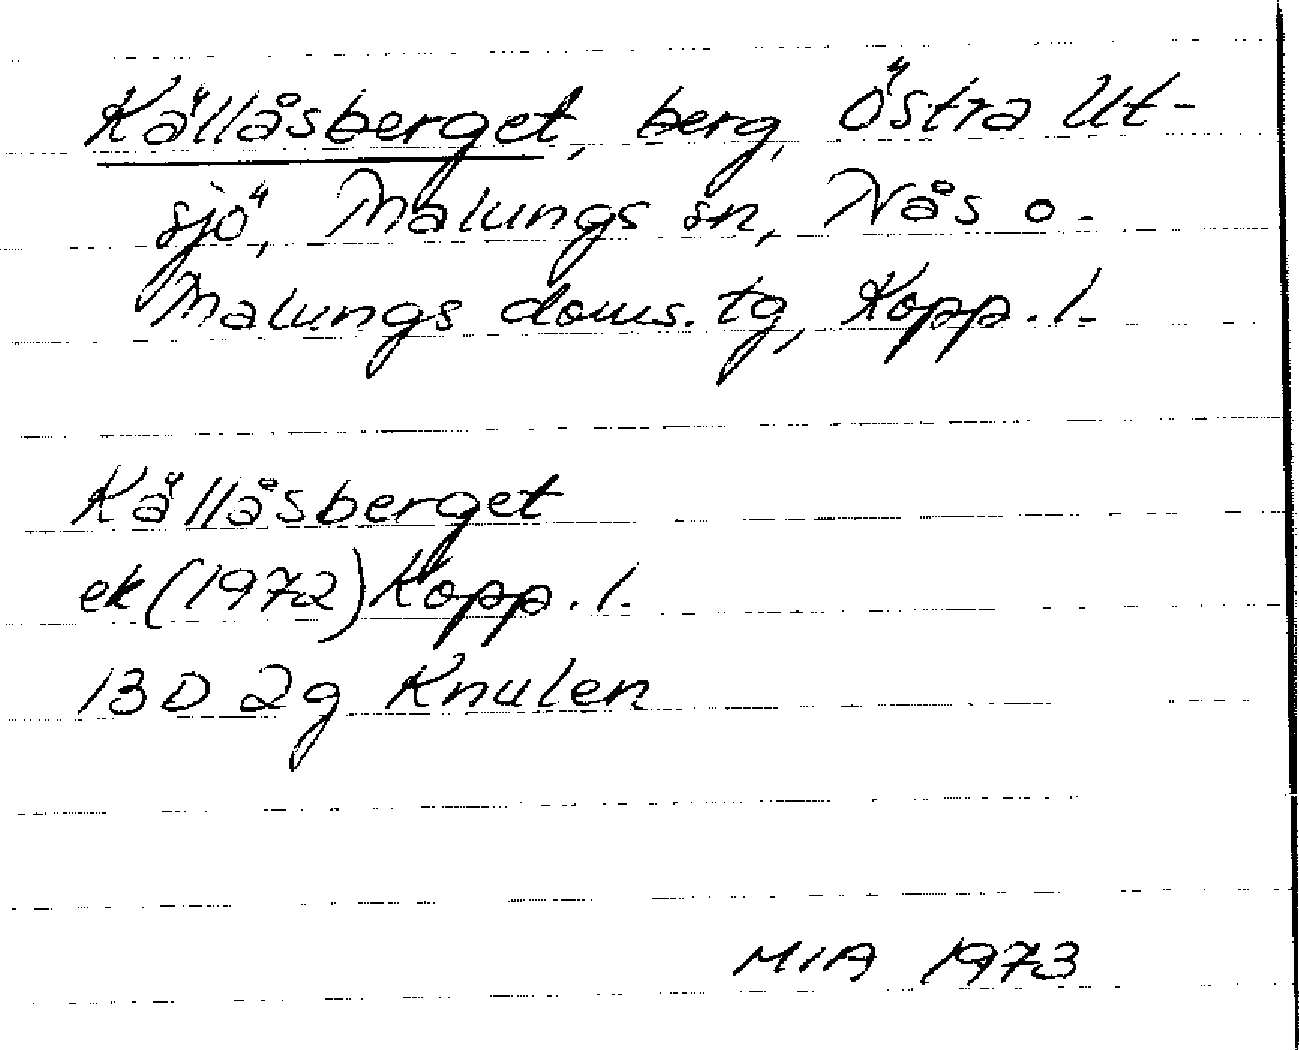 Källåsberget, berg, Östra Ut-
sjö, Malungs sn, Nås o.
Malungs doms. tg, Kopp. l.
Källåsberget
ek (1972) Kopp. l.
13 D 2g Knulen
MIA 1973